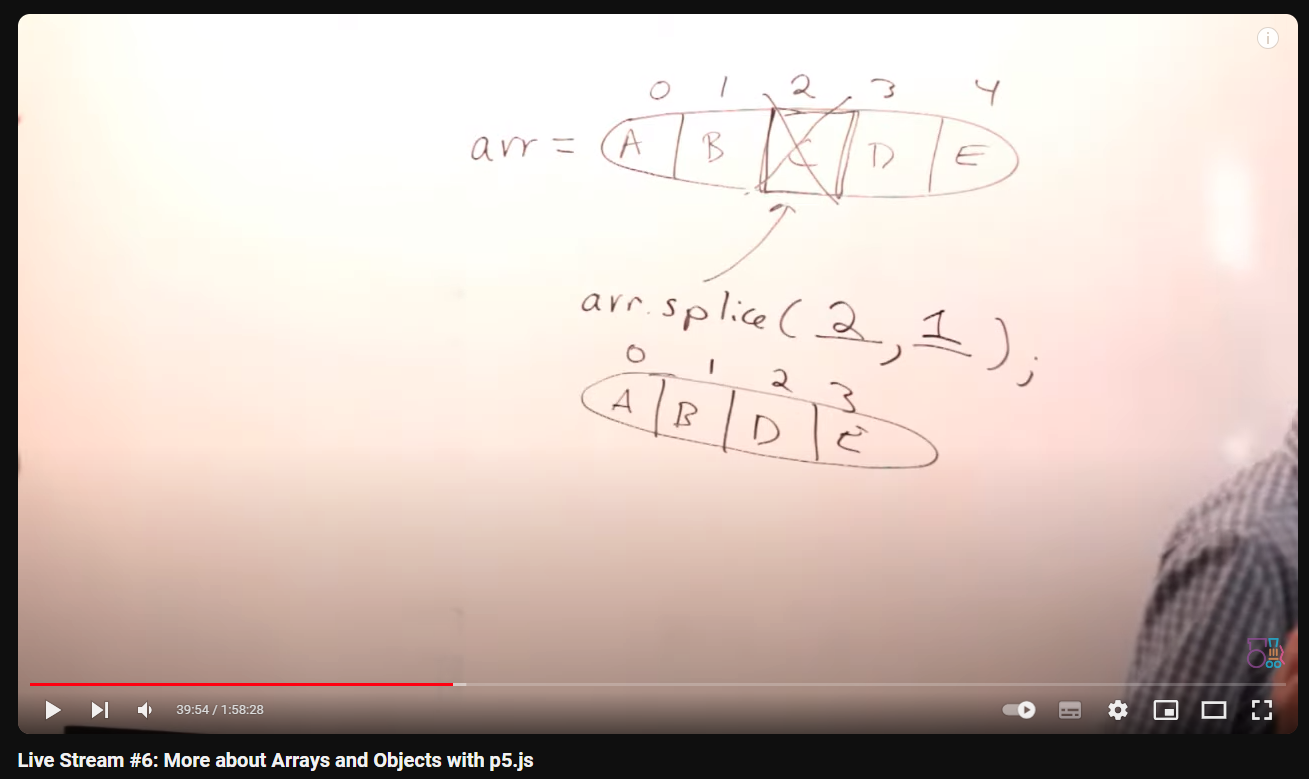 0 1 2 3 4
arr = A B C D E
arr.splice( 2, 1 );
0 1 2 3
A B D E
39:54 / 1:58:28
Live Stream #6: More about Arrays and Objects with p5.js